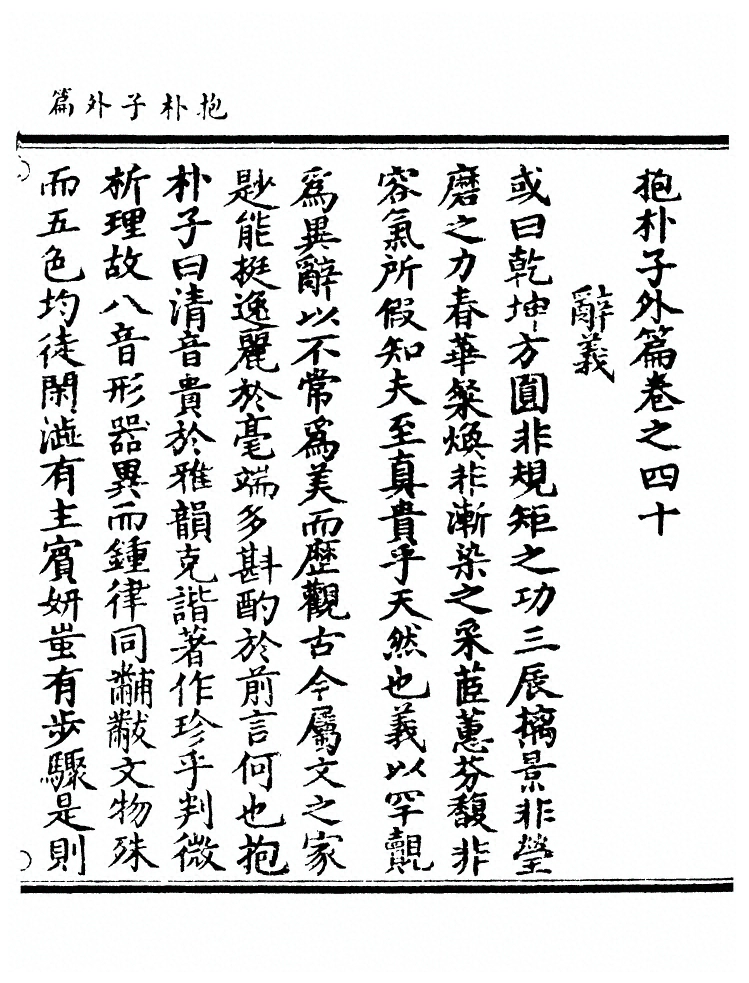 抱朴子外篇
抱朴子外篇卷之四十
辭義
或曰乾坤方圓非規矩之功三辰摛景非瑩
磨之力春華粲煥非漸染之采茝蕙芬馥非
容氣所假知夫至真貴乎天然也義以罕覿
爲異辭以不常爲美而歷觀古今屬文之家
尟能挺逸麗於毫端多斟酌於前言何也抱
朴子曰清音貴於雅韻克諧著作珍乎判微
析理故八音形器異而鍾律同黼黻文物殊
而五色均徒閑澁有主賓妍蚩有步驟是則